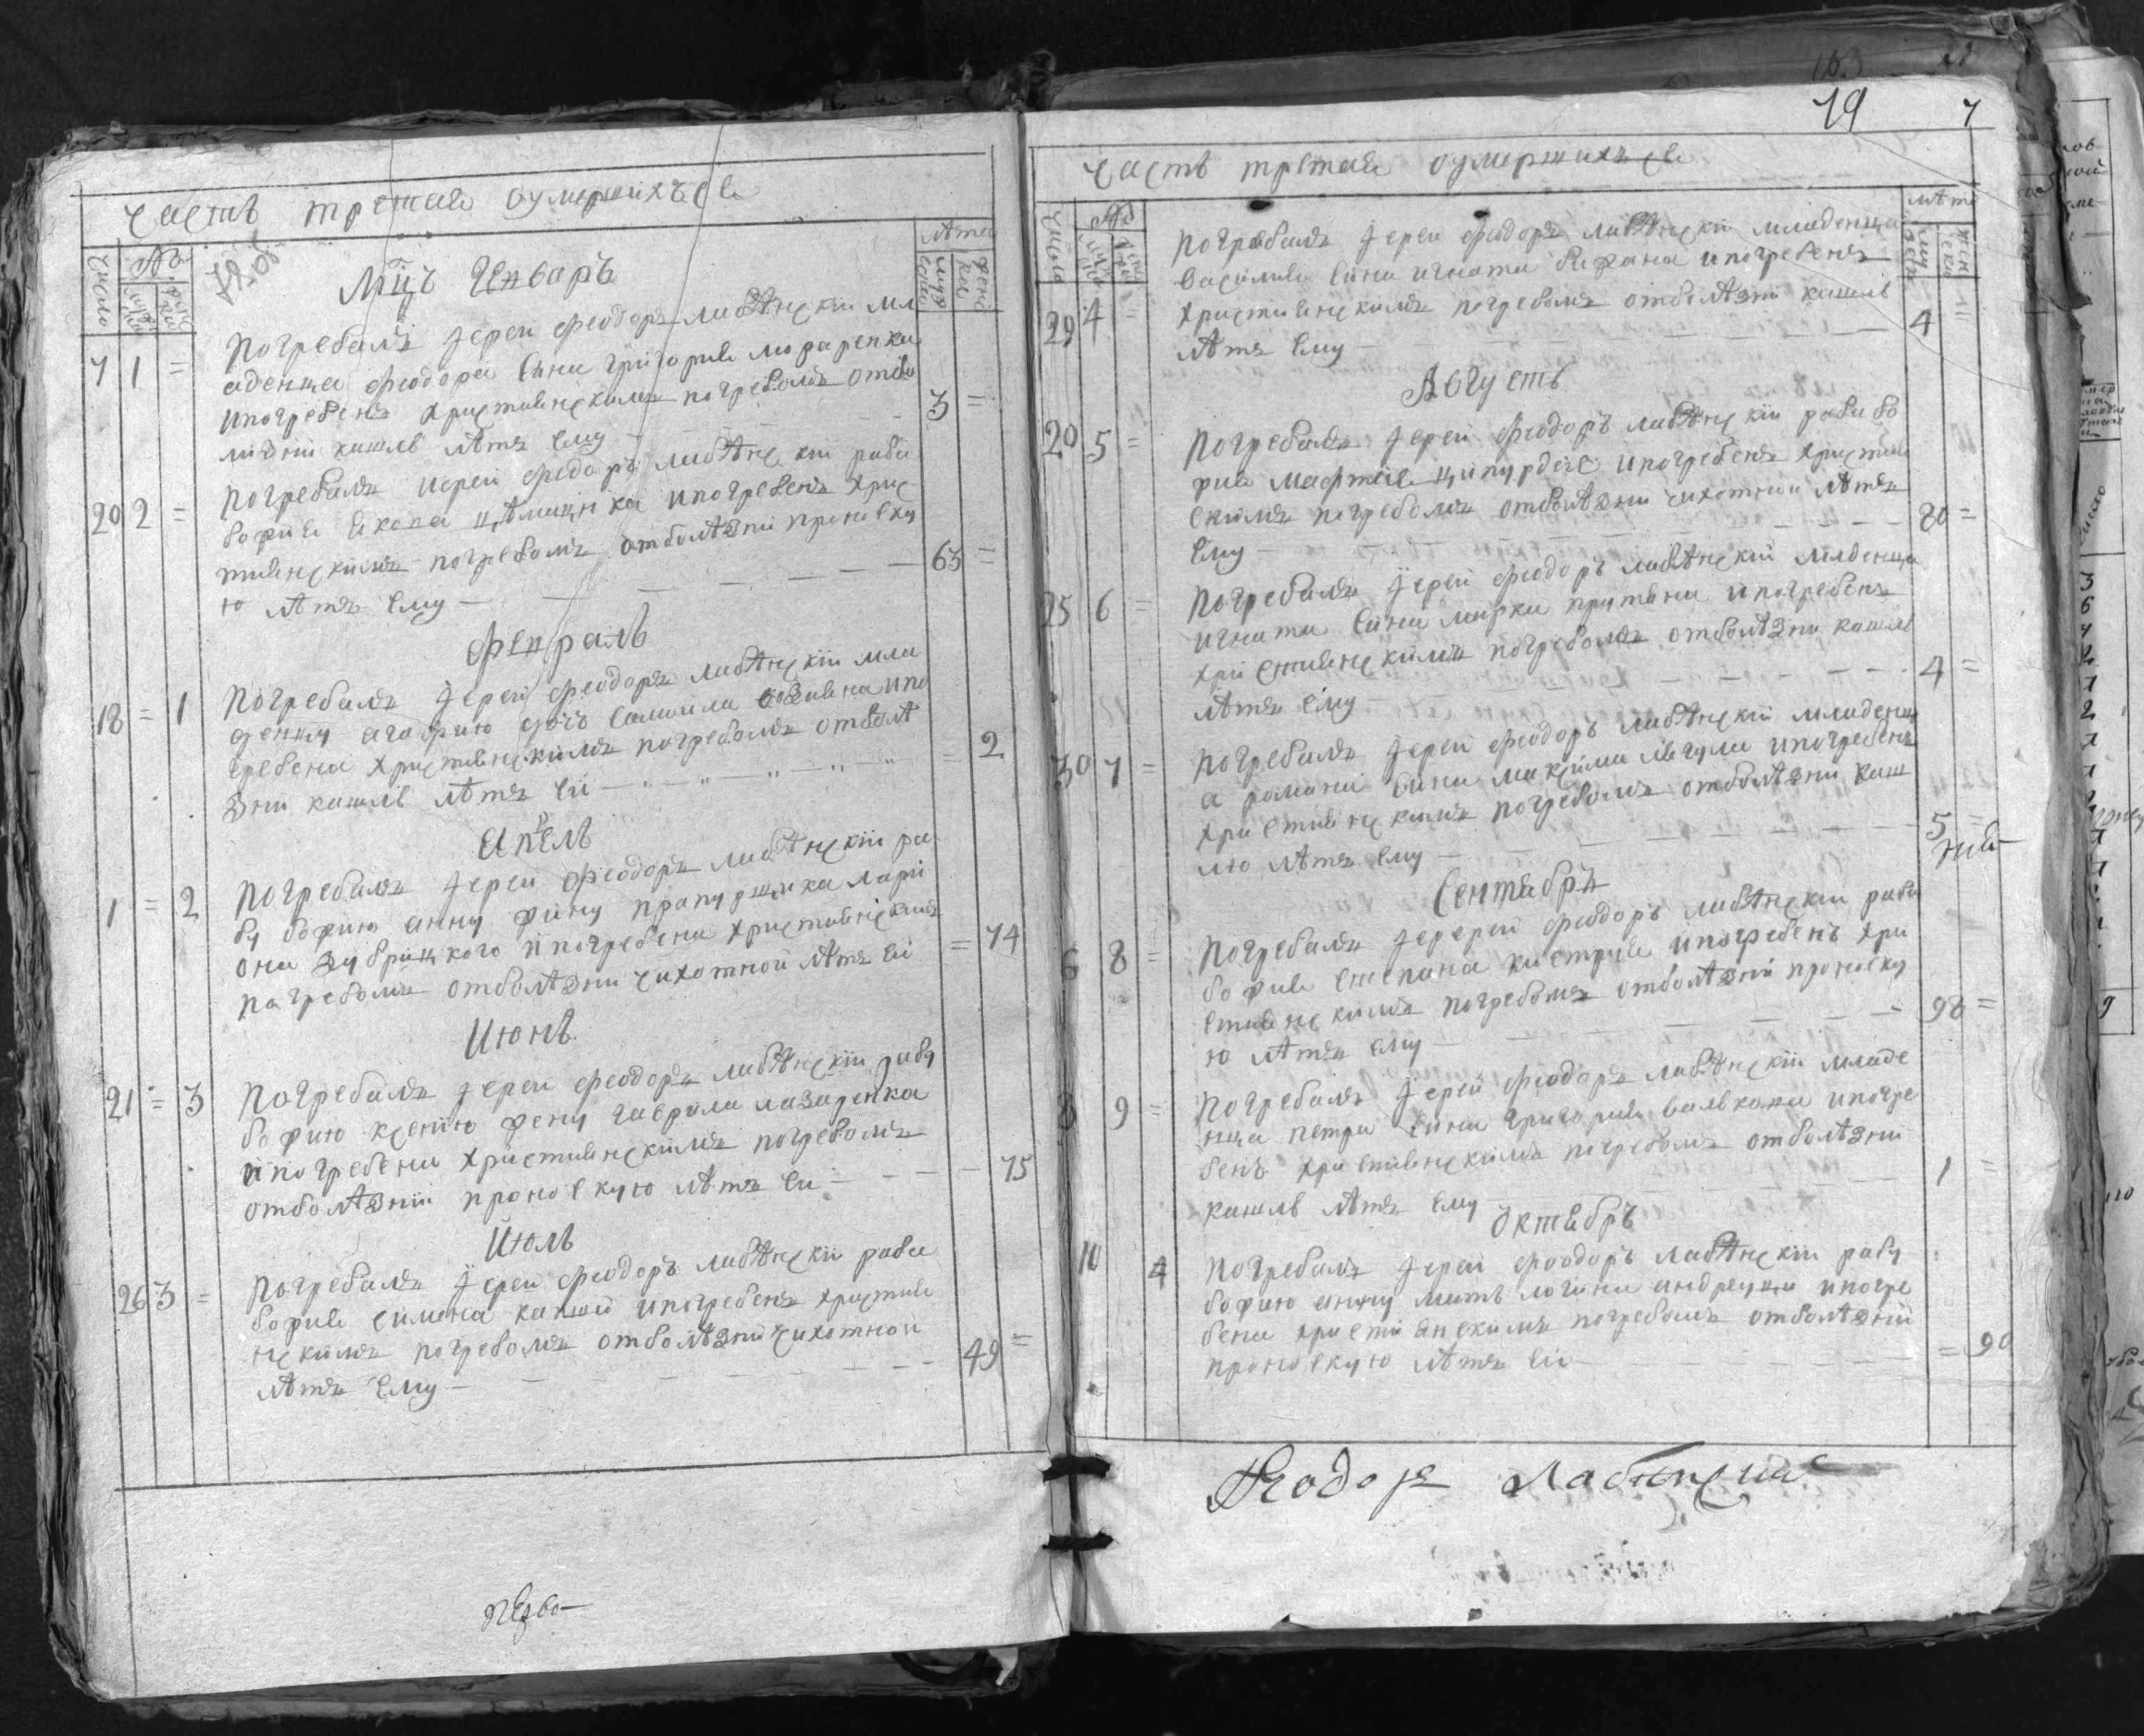 часть третая оумершихъся
число № лѣта
муж женс муж женс ка
Мцъ Генваръ
7 1 = Погребалъ Іереи Феодоръ Лабѣнскіи мл
аденца Феодора сина Григория
и погребенъ християнскимъ погребомъ отбо
лизни кашлѣ лѣтъ ему 3 =
20 2 = Погребалъ иереи Феодоръ Лабѣнскіи раба
божия Якова и погребенъ хрис
тиянскимъ погребомъ отболѣзни проносну
ю лѣтъ ему 63 =
Февраль
18 = 1 Погребалъ Іереи Феодоръ Лабѣнскіи мла
денцу Агафию дочь Самоила и по
гребена християнскимъ погребомъ отболѣ
зни кашлѣ лѣтъ ей = 2
Апрель
1 = 2 Погребалъ Іереи Феодоръ Лабѣнскіи ра
бу божию анну
и погребена християнскимъ
погребомъ отболѣзни сихотной лѣтъ ей = 74
Июнь
21 = 3 Погребалъ Іереи Феодоръ Лабѣнскіи рабу
божию ксению жену гаврила лазаренка
и погребена християнскимъ погребомъ
отболѣзни проноскую лѣтъ ей 75
Июль
26 3 = Погребалъ Іереи Феодоръ Лабѣнскіи раба
божия симона и погребенъ христия
нскимъ погребомъ отболѣзни сихотнои
лѣтъ ему 49 =
перво
79 7
часть третая оумершихъся
число № лѣта
Погребалъ Іереи Феодоръ Лабѣнскіи младенца
Василия сина игната и погребенъ
29 4 = християнскимъ погребомъ отболѣзни кашлѣ
лѣтъ ему 4 =
Августъ
20 5 = Погребалъ Іереи Феодоръ Лабѣнскіи раба бо
жия и погребенъ християн
скимъ погребомъ отболѣзни сихотнои лѣтъ
ему 80 =
25 6 = Погребалъ Іереи Феодоръ Лабѣнскіи младенца
игната сина марка и погребенъ
християнскимъ погребомъ отболѣзни кашлѣ
лѣтъ ему 4 =
30 7 = Погребалъ Іереи Феодоръ Лабѣнскіи младенц
а романа сина максима и погребенъ
християнскимъ погребомъ отболѣзни каш
лю лѣтъ ему 5 =
Сентябръ
6 8 = Погребалъ Іеререй Феодоръ Лабѣнскіи раба
божия степана и погребенъ хри
стиянскимъ погребомъ отболѣзни проноску
ю лѣтъ ему 98 =
8 9 = Погребалъ Іереи Феодоръ Лабѣнскіи младе
нца петра сина григория и погре
бенъ християнскимъ погребомъ отболѣзни
кашлѣ лѣтъ ему 1 =
Октябръ
10 4 Погребалъ Іереи Феодоръ Лабѣнскіи рабу
божию анну мать и погре
бена християнскимъ погребомъ отболѣзни
проноскую лѣтъ ей = 90
Феодоръ Лабѣнскій